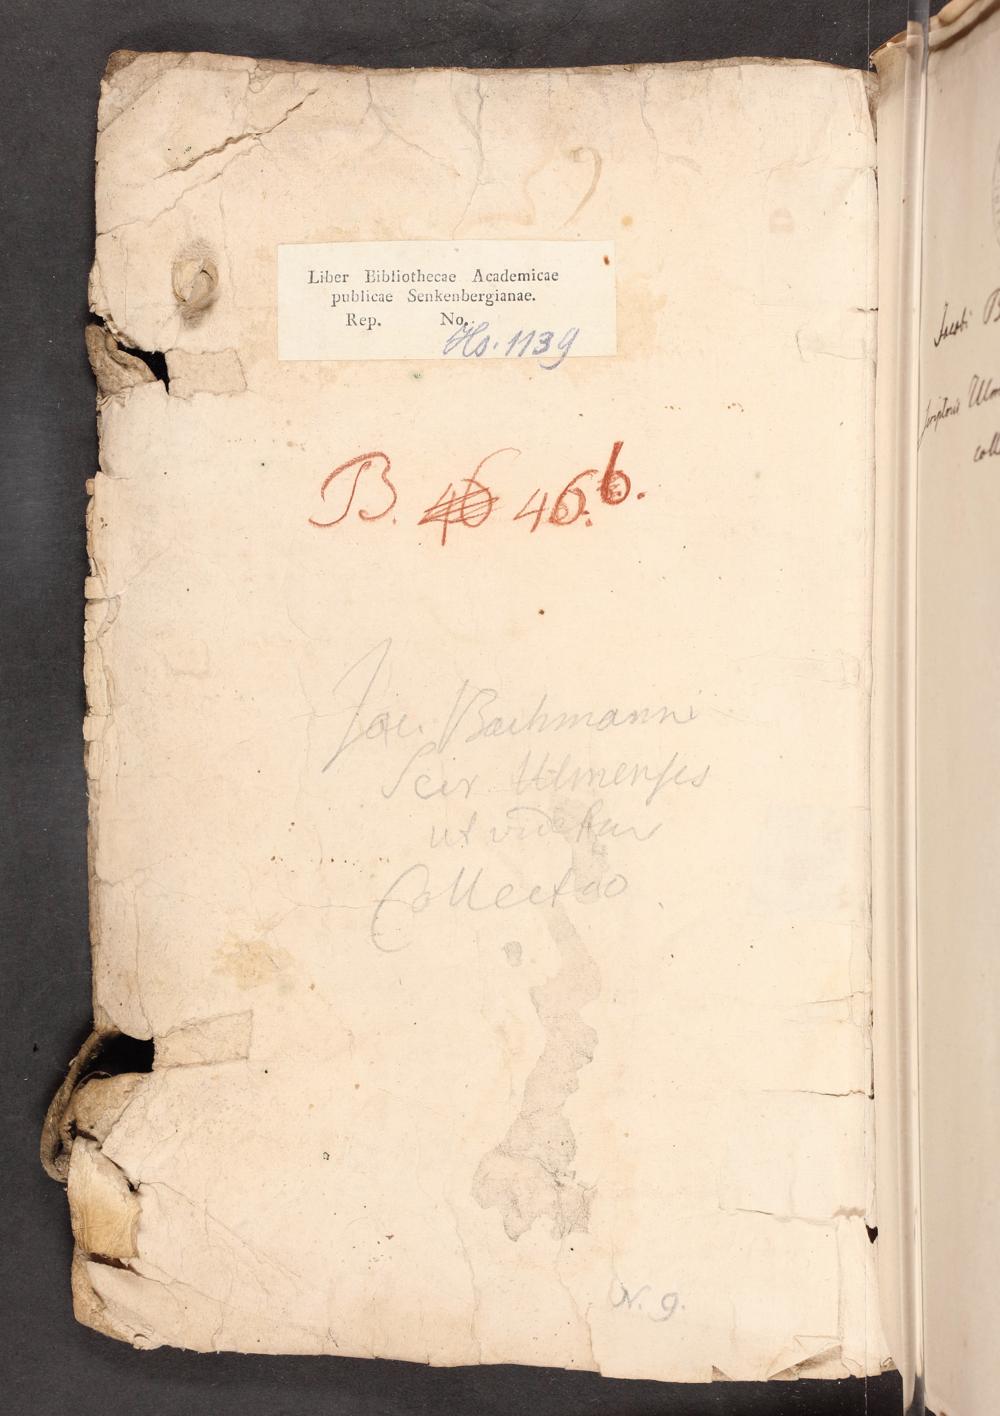 Liber Bibliothecae Academicae
publicae Senkenbergianae.
Rep. No.
Hs. 1139
B. 46 46.b.
Jac. Bachmanni
Scr. Ulmensis
ut videtur
Collectio
N. 9.
Jacobi
Ulm
coll